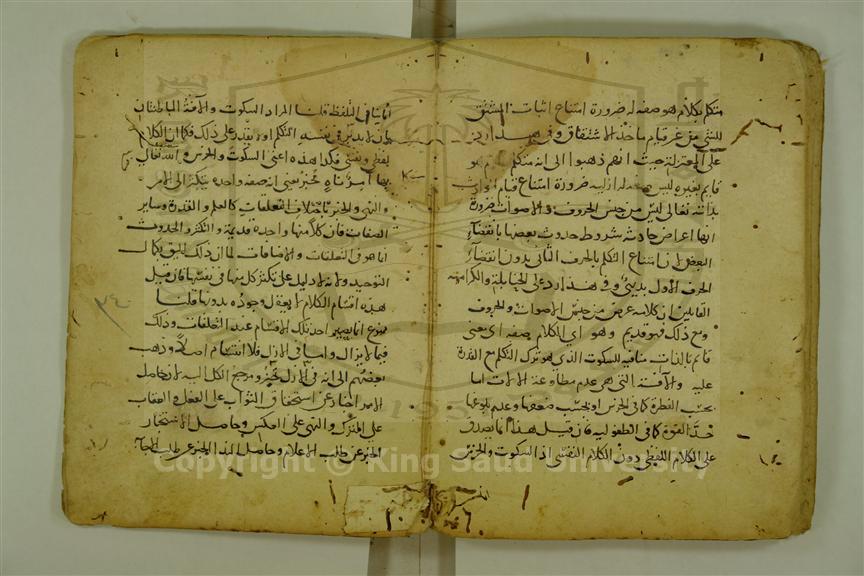 متكلم بكلام هو صفة له ضرورة امتناع اثبات المشتق
للشئ من غير قيام مأخذ الاشتقاق وفي هذا رد
على المعتزلة حيث انهم ذهبوا الى انه متكلم بكلام هو
قايم بغيره ليس صفة له ازلية ضرورة امتناع قيام الحوادث
بذاته تعالى ليس من جنس الحروف والاصوات ضرورة
انها اعراض حادثة مشروط حدوث بعضها بانقضآء
البعض لان امتناع التكلم بالحرف الثاني بدون انقضآء
الحرف الاول بديهي وفي هذا رد على الحنابلة والكرامية
القايلين ان كلامه عرض من جنس الاصوات والحروف
ومع ذلك فهو قديم وهو اي الكلام صفة اي معنى
قائم بالذات منافية للسكوت الذي هو ترك التكلم مع القدرة
عليه والآفة التي هي عدم مطاوعة الالات اما
بحسب الفطرة كما في الخرس او بحسب ضعفها وعدم بلوغها
حد القوة كما في الطفولية فان قيل هذا انما يصدق
على الكلام اللفظي دون الكلام النفسي اذ السكوت والخرس
انما ينافي التلفظ قلنا المراد السكوت والآفة الباطنتان
بان لا يدبر في نفسه التكلم او لا يقدر على ذلك فكما ان الكلام
لفظي ونفسي فكذا ضده اعني السكوت والخرس والله تعالى
بها آمر ناه مخبر يعني انه صفة واحدة يتكثر الى الامر
والنهي والخبر باختلاف التعلقات كالعلم والقدرة وساير
الصفات فان كلا منها واحدة قديمة والتكثر والحدوث
انما هو في التعلقات والاضافات لما ان ذلك اليق بكمال
التوحيد ولانه لا دليل على تكثر كل منها في نفسها فان قيل
هذه اقسام الكلام لا يعقل وجوده بدونها قلنا
ممنوع انما يصير احد تلك الاقسام عند التعلقات وذلك
فيما لا يزال واما في الازل فلا انقسام اصلا وذهب
بعضهم الى انه في الازل خبر ومرجع الكل اليه لان حاصل
الامر اخبار عن استحقاق الثواب على الفعل والعقاب
على الترك والنهي على العكس وحاصل الاستخبار
الخبر عن طلب الاعلام وحاصل الندا الخبر عن طلب الاجآ
٢٤
Copyright © King Saud University